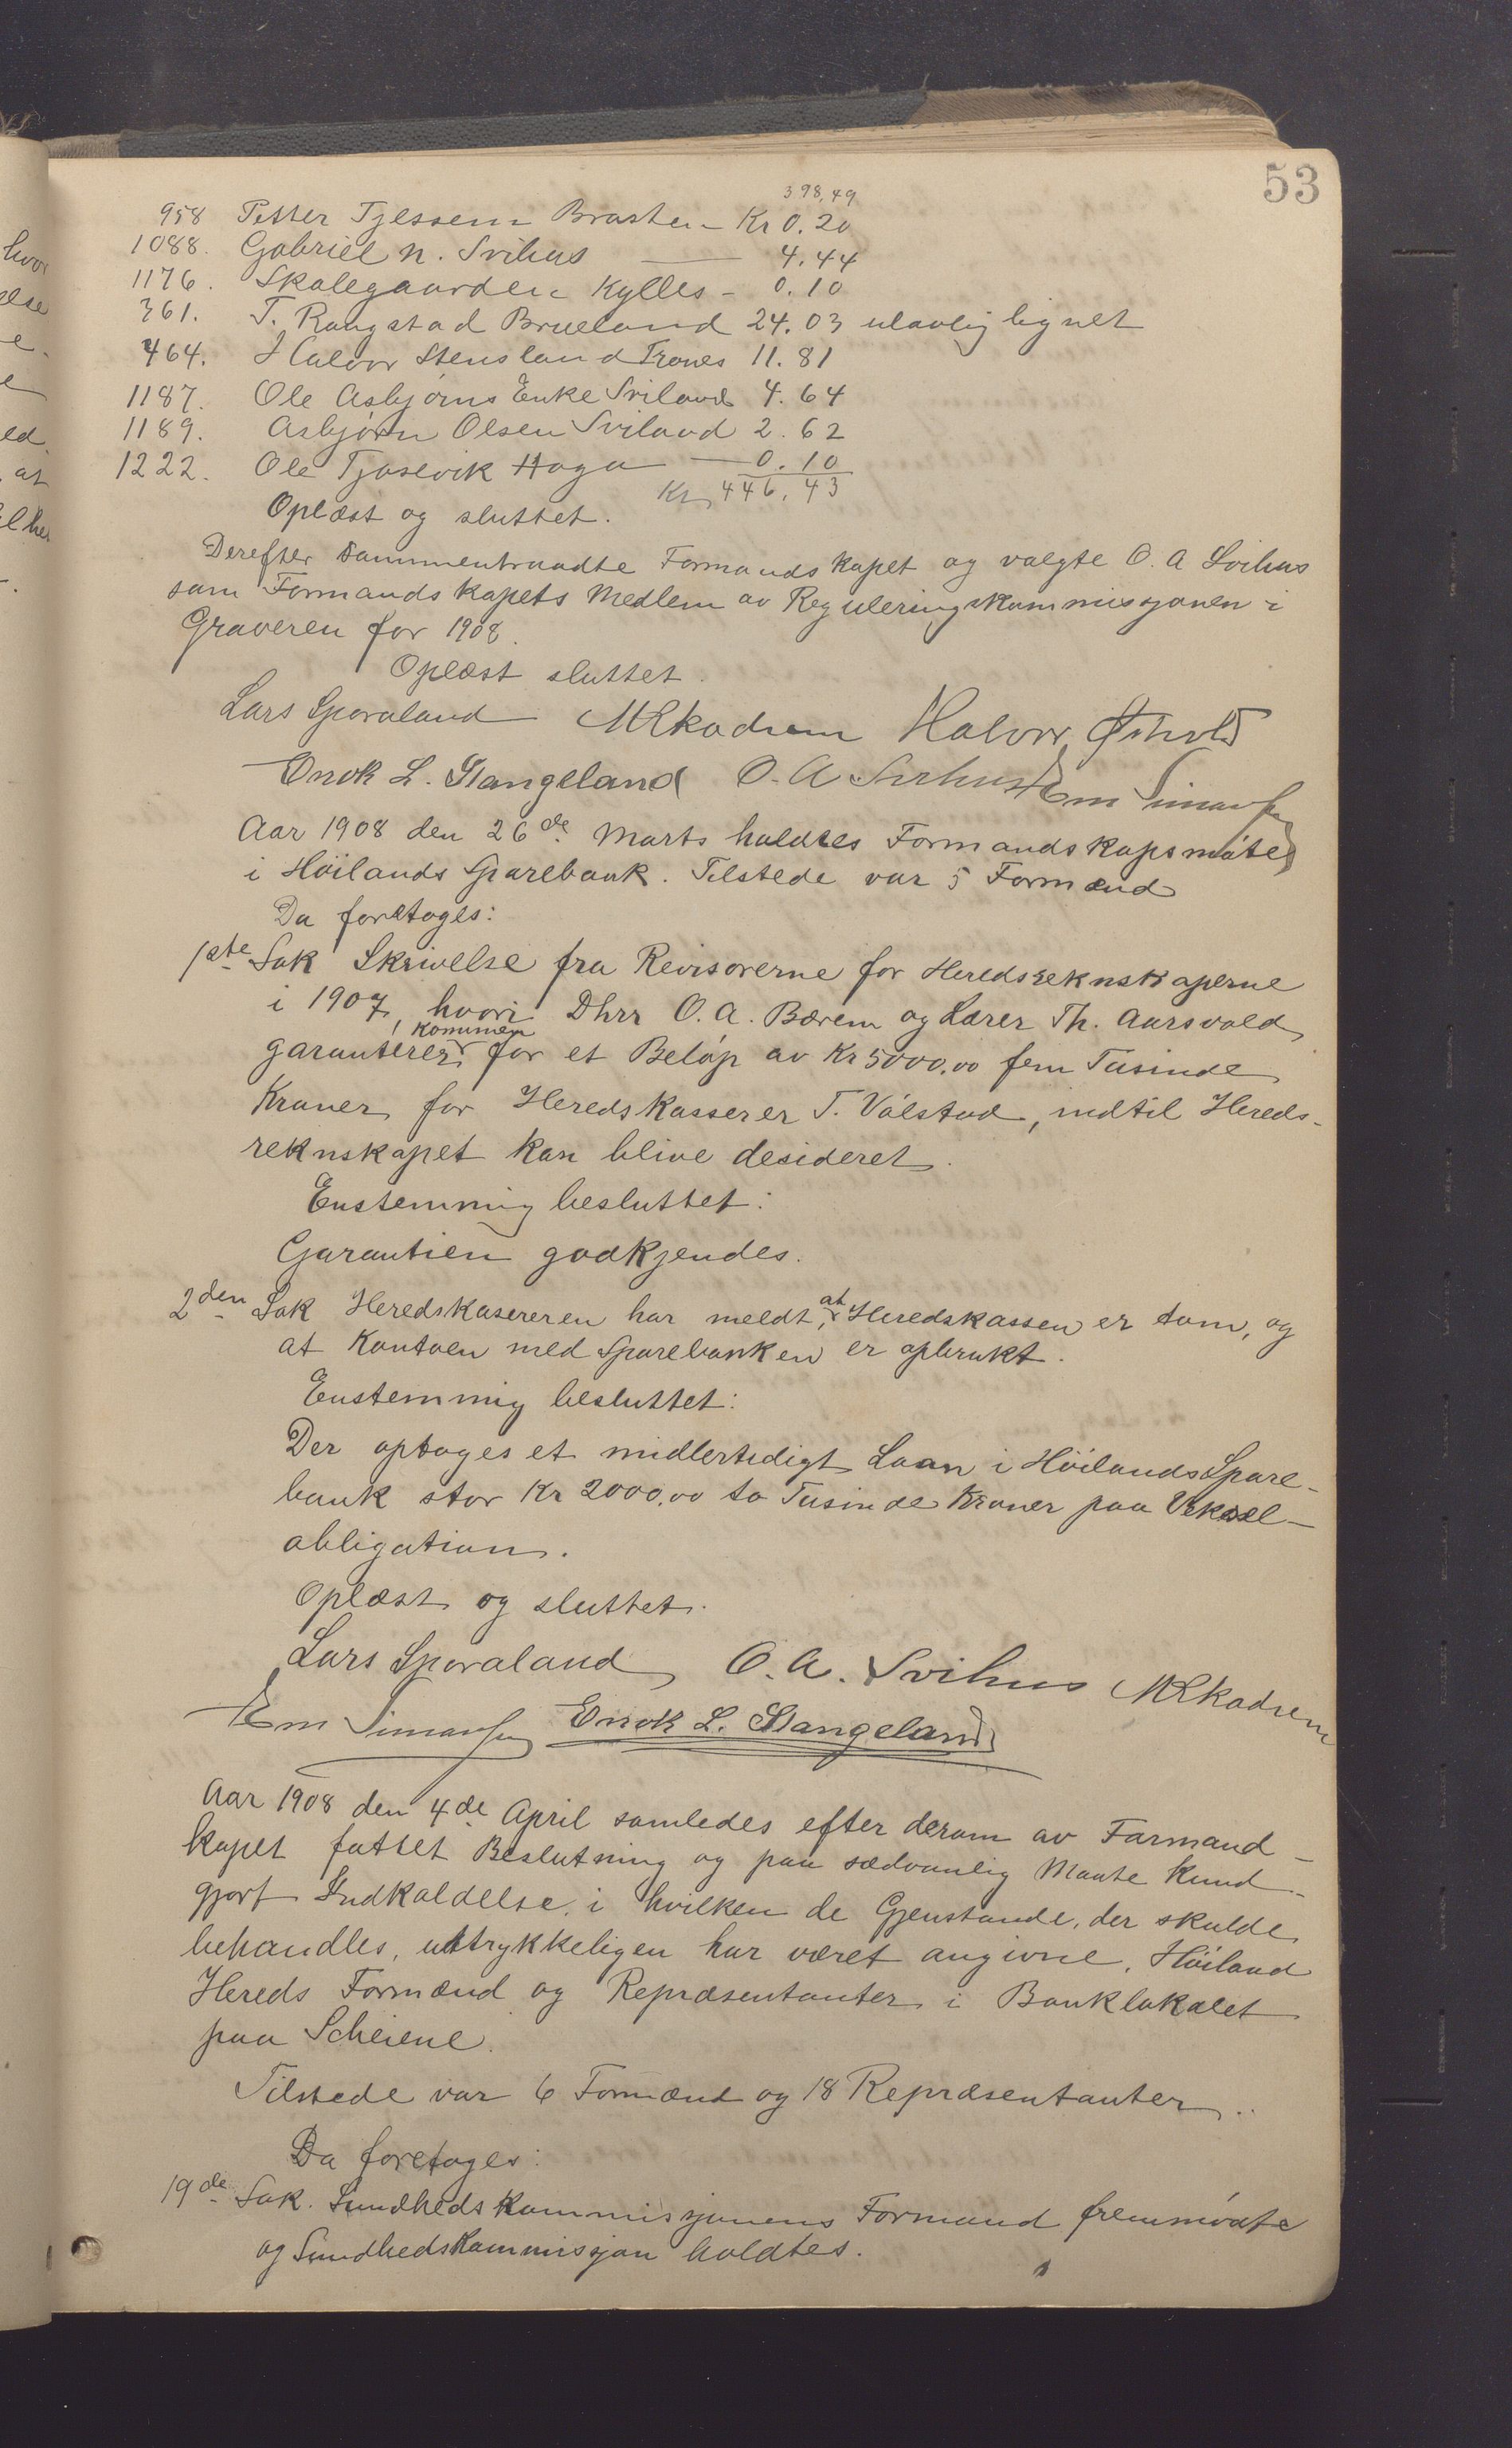 53
398,49
958 Petter Tjessem Brasten - Kr 0.20
1088. Gabriel N. Svihus — 4.44
1176. Skalegaarden Kylles - 0.10
361. T. Rangstad Brueland 24.03 ulovlig lignet
464. Halvor Stensland Trones 11.81
1187. Ole Asbjørns Enke Sviland 4.64
1189. Asbjørn Olsen Sviland 2.62
1222. Ole Tjosevik Hogu — 0.10
Kr 446,43
Oplæst og sluttet.
Derefter sammentraadte Formandskapet og valgte O. A Svihus
som Formandskapets Medlem av Reguleringskommissjonen i
Graveren for 1908.
Oplæst sluttet.
Lars Sporaland M Skadsem Halvor
Enok L. Stangeland O. A Svihus Em Simonsen
Aar 1908 den 26de Marts holdtes Formandskapsmøte
i Høilands Sparebank. Tilstede var 5 Formænd
Da foretoges:
1ste Sak Skrivelse fra Revisorerne for Heredsreknskaperne
i 1907, hvori Dhrr O. A. Bærem og Lærer Th. Aarsvold
kommen
garanterer for et Beløp av Kr 5000,00 fem Tusinde
Kroner for Heredskasserer T. Vålstad, indtil Hereds-
reknskapet kan blive desideret.
Enstemmig besluttet:
Garantien godkjendes.
2den Sak Heredskasereren har meldt, at Heredskassen er tom, og
at Kontoen med Sparebanken er opbrukt.
Enstemmig besluttet:
Der optoges et midlertidigt Laan i Høilands Spare-
bank stor Kr 2000,00 to Tusinde Kroner paa Veksel-
obligation.
Oplæst og sluttet.
Lars Sporaland O. A. Svihus M Skadsem
Em Simonsen Enok L. Stangeland
Aar 1908 den 4de April samledes efter derom av Formand-
kapet fattet Beslutning og paa sædvanlig Maate kund-
gjort Indkaldelse, i hvilken de Gjenstande, der skulde
behandles, uttrykkeligen har været angivne, Høiland
Hereds Formænd og Repræsentanter i Banklokalet
paa Scheiene.
Tilstede var 6 Formænd og 18 Repræsentanter.
Da foretoges:
19de Sak. Sundhedskommissjonens Formand fremmøtte
og Sundhedskommissjon holdtes.